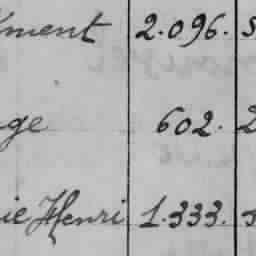 ment 2.096.
ge 602. 2
ie Henri 1.333.